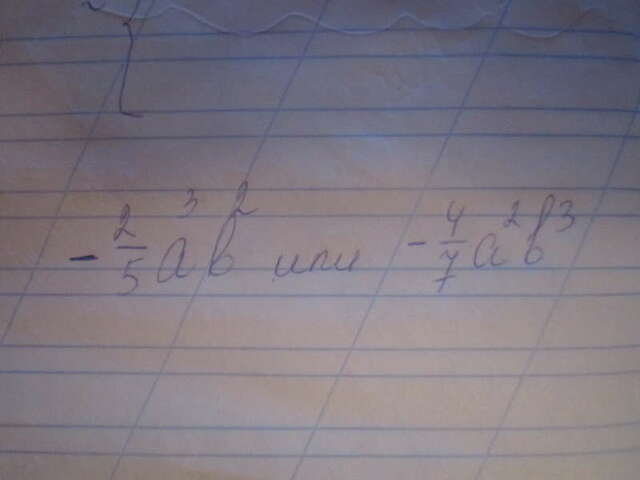 -2/5 a³b² или -4/7 a²b³